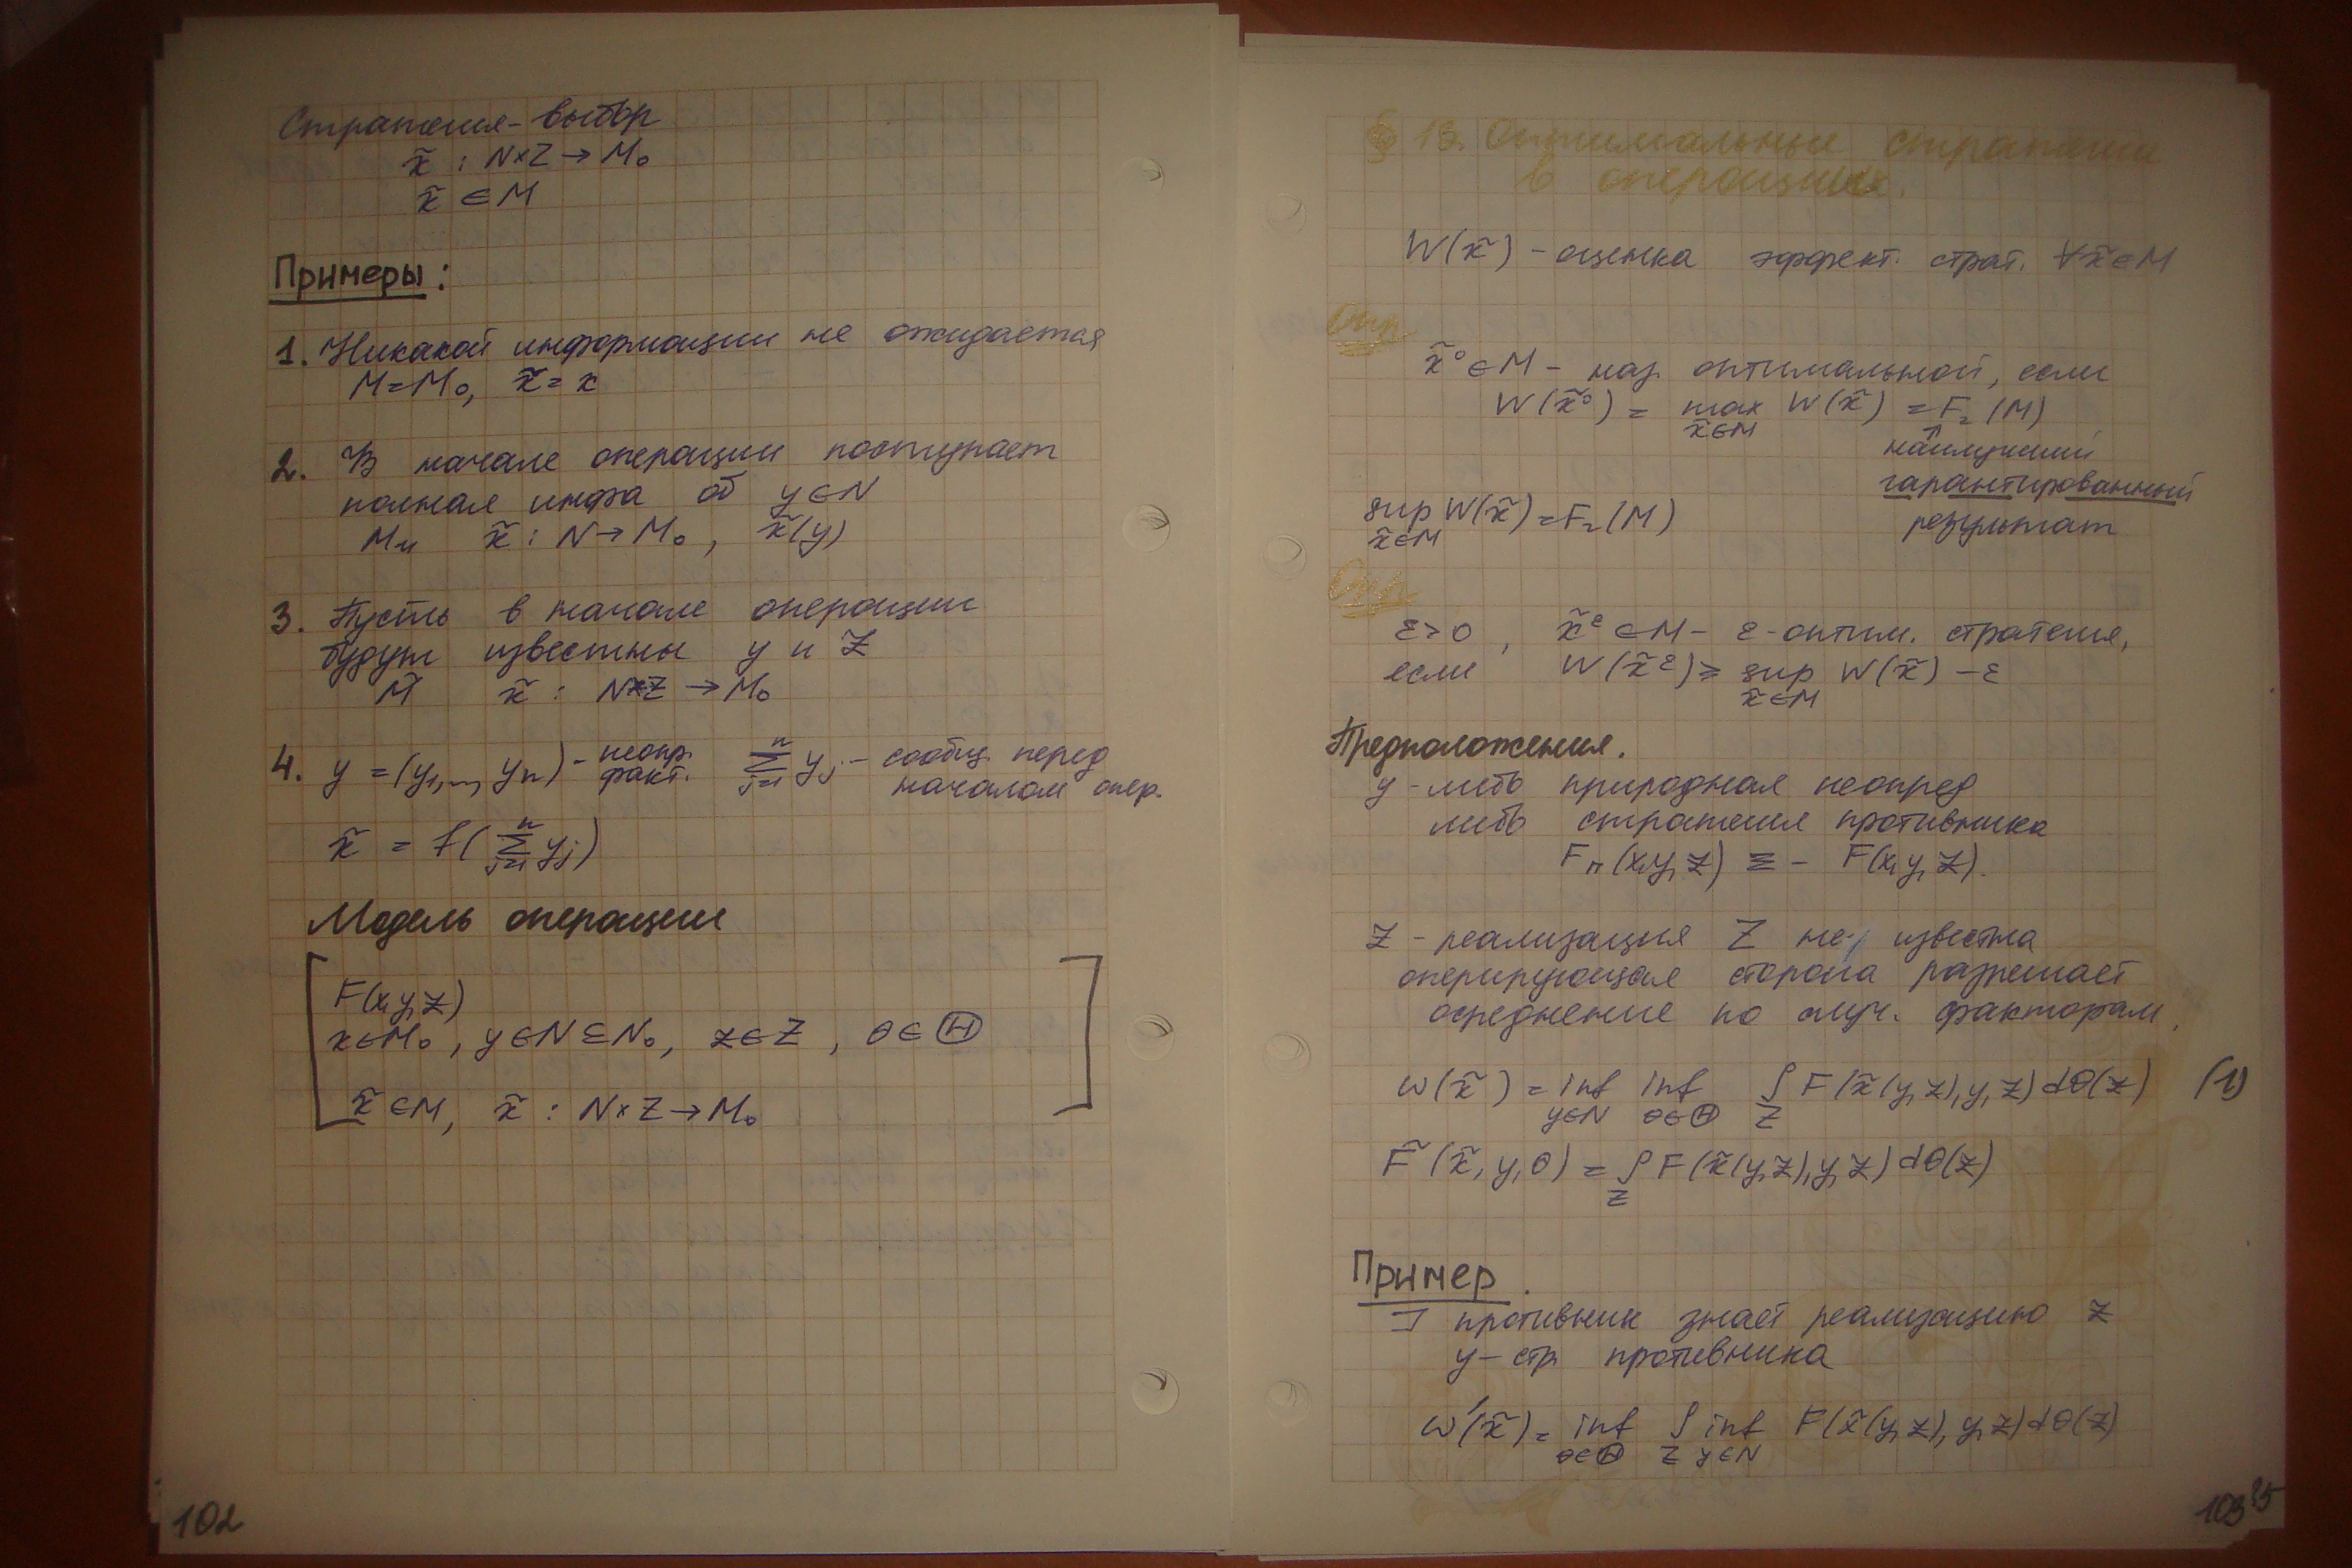 Стратегия - выбор
x̃ : N×Z → M₀
x̃ ∈ M
Примеры:
1. Никакой информации не ожидается
M = M₀, x̃ = x
2. В начале операции поступает
полная инфа об y∈N
Mи x̃ : N → M₀, x̃(y)
3. Пусть в начале операции
будут известны y и z
M̃ x̃ : N×Z → M₀
4. y = (y₁,..., yn) - неопр. факт. ∑ⁿⱼ₌₁ yⱼ - сообщ. перед
началом опер.
x̃ = f(∑ⁿⱼ₌₁ yⱼ)
Модель операции
F(x,y,z)
x∈M₀, y∈N⊆N₀, z∈Z, θ∈Ⓗ
x̃∈M, x̃ : N×Z → M₀
102
§ 13. Оптимальные стратегии
в операциях.
W(x̃) - оценка эффект. страт. ∀x̃∈M
Опр
x̃⁰∈M - наз. оптимальной, если
W(x̃⁰) = max x̃∈M W(x̃) = Fг(M)
↑
наилучший
гарантированный
результат
sup x̃∈M W(x̃) = Fг(M)
Опр
ε>0, x̃^ε∈M - ε-оптим. стратегия,
если W(x̃^ε) ⩾ sup x̃∈M W(x̃) - ε
Предположения.
y - либо природная неопред
либо стратегия противника
Fп(x,y,z) ≡ - F(x,y,z).
z - реализация Z не известна
оперирующая сторона разрешает
осреднение по случ. факторам.
W(x̃) = inf y∈N inf θ∈Ⓗ ∫_Z F(x̃(y,z),y,z)dθ(z) (1)
F̃(x̃,y,θ) = ∫_Z F(x̃(y,z),y,z)dθ(z)
Пример.
] противник знает реализацию z
y - стр. противника
W'(x̃) = inf θ∈Ⓗ ∫_Z inf y∈N F(x̃(y,z),y,z)dθ(z)
103